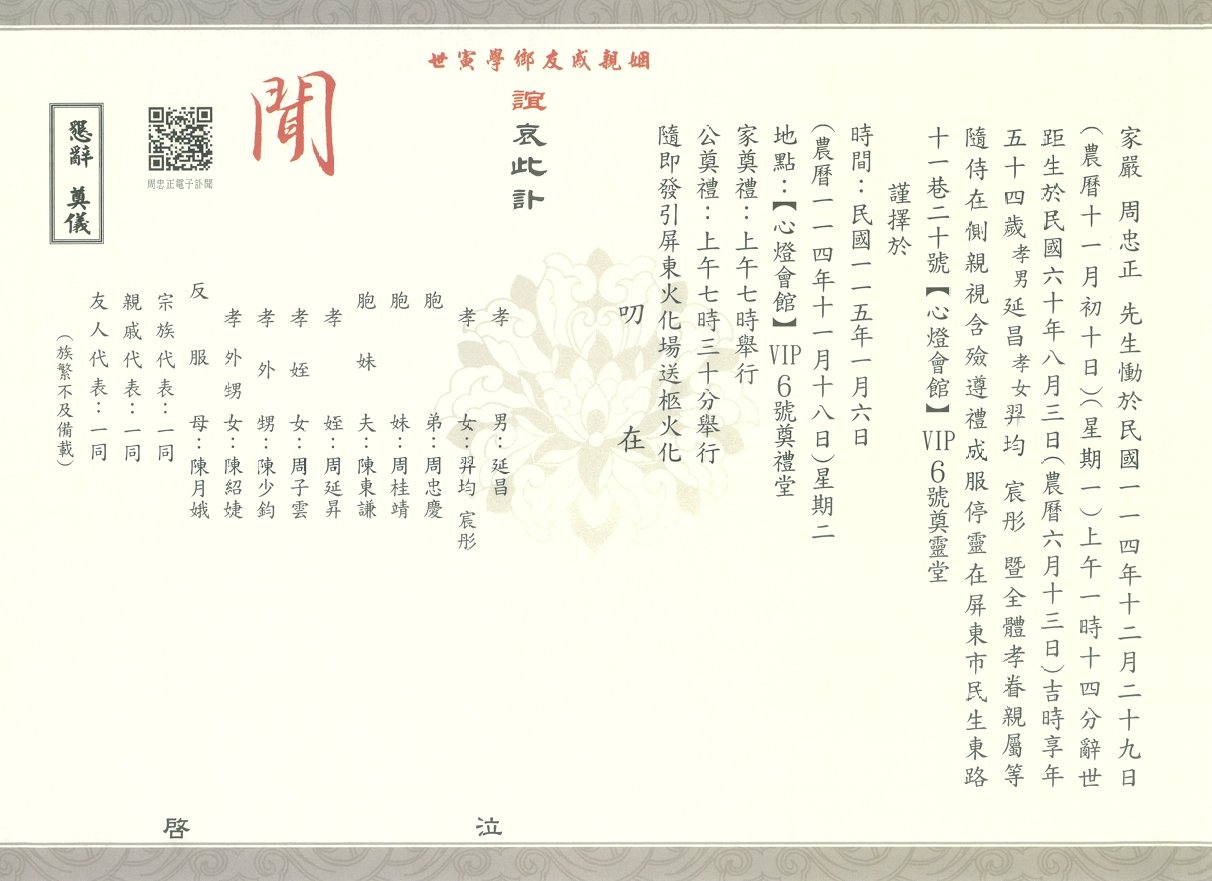 家嚴 周忠正 先生慟於民國一一四年十二月二十九日
(農曆十一月初十日)(星期一)上午一時十四分辭世
距生於民國六十年八月三日(農曆六月十三日)吉時享年
五十四歲孝男延昌孝女羿均 宸彤 暨全體孝眷親屬等
隨侍在側親視含殮遵禮成服停靈在屏東市民生東路
十一巷二十號【心燈會館】VIP6號奠靈堂
謹擇於
時間：民國一一五年一月六日
(農曆一一四年十一月十八日)星期二
地點：【心燈會館】VIP6號奠禮堂
家奠禮：上午七時舉行
公奠禮：上午七時三十分舉行
隨即發引屏東火化場送柩火化
叨 在
姻親戚友鄉學寅世
誼哀此訃
聞
孝男：延昌
孝女：羿均 宸彤
胞弟：周忠慶
胞妹：周桂靖
胞妹夫：陳東謙
孝姪：周延昇
孝姪女：周子雲
孝外甥：陳少鈞
孝外甥女：陳紹婕
反服母：陳月娥
宗族代表：一同
親戚代表：一同
友人代表：一同
(族繁不及備載)
泣
啓
周忠正電子訃聞
懇辭 奠儀